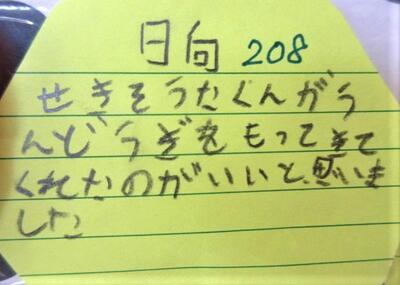 日向 208
せきそうたくんがう
んどうぎをもってきて
くれたのがいいと思いま
した